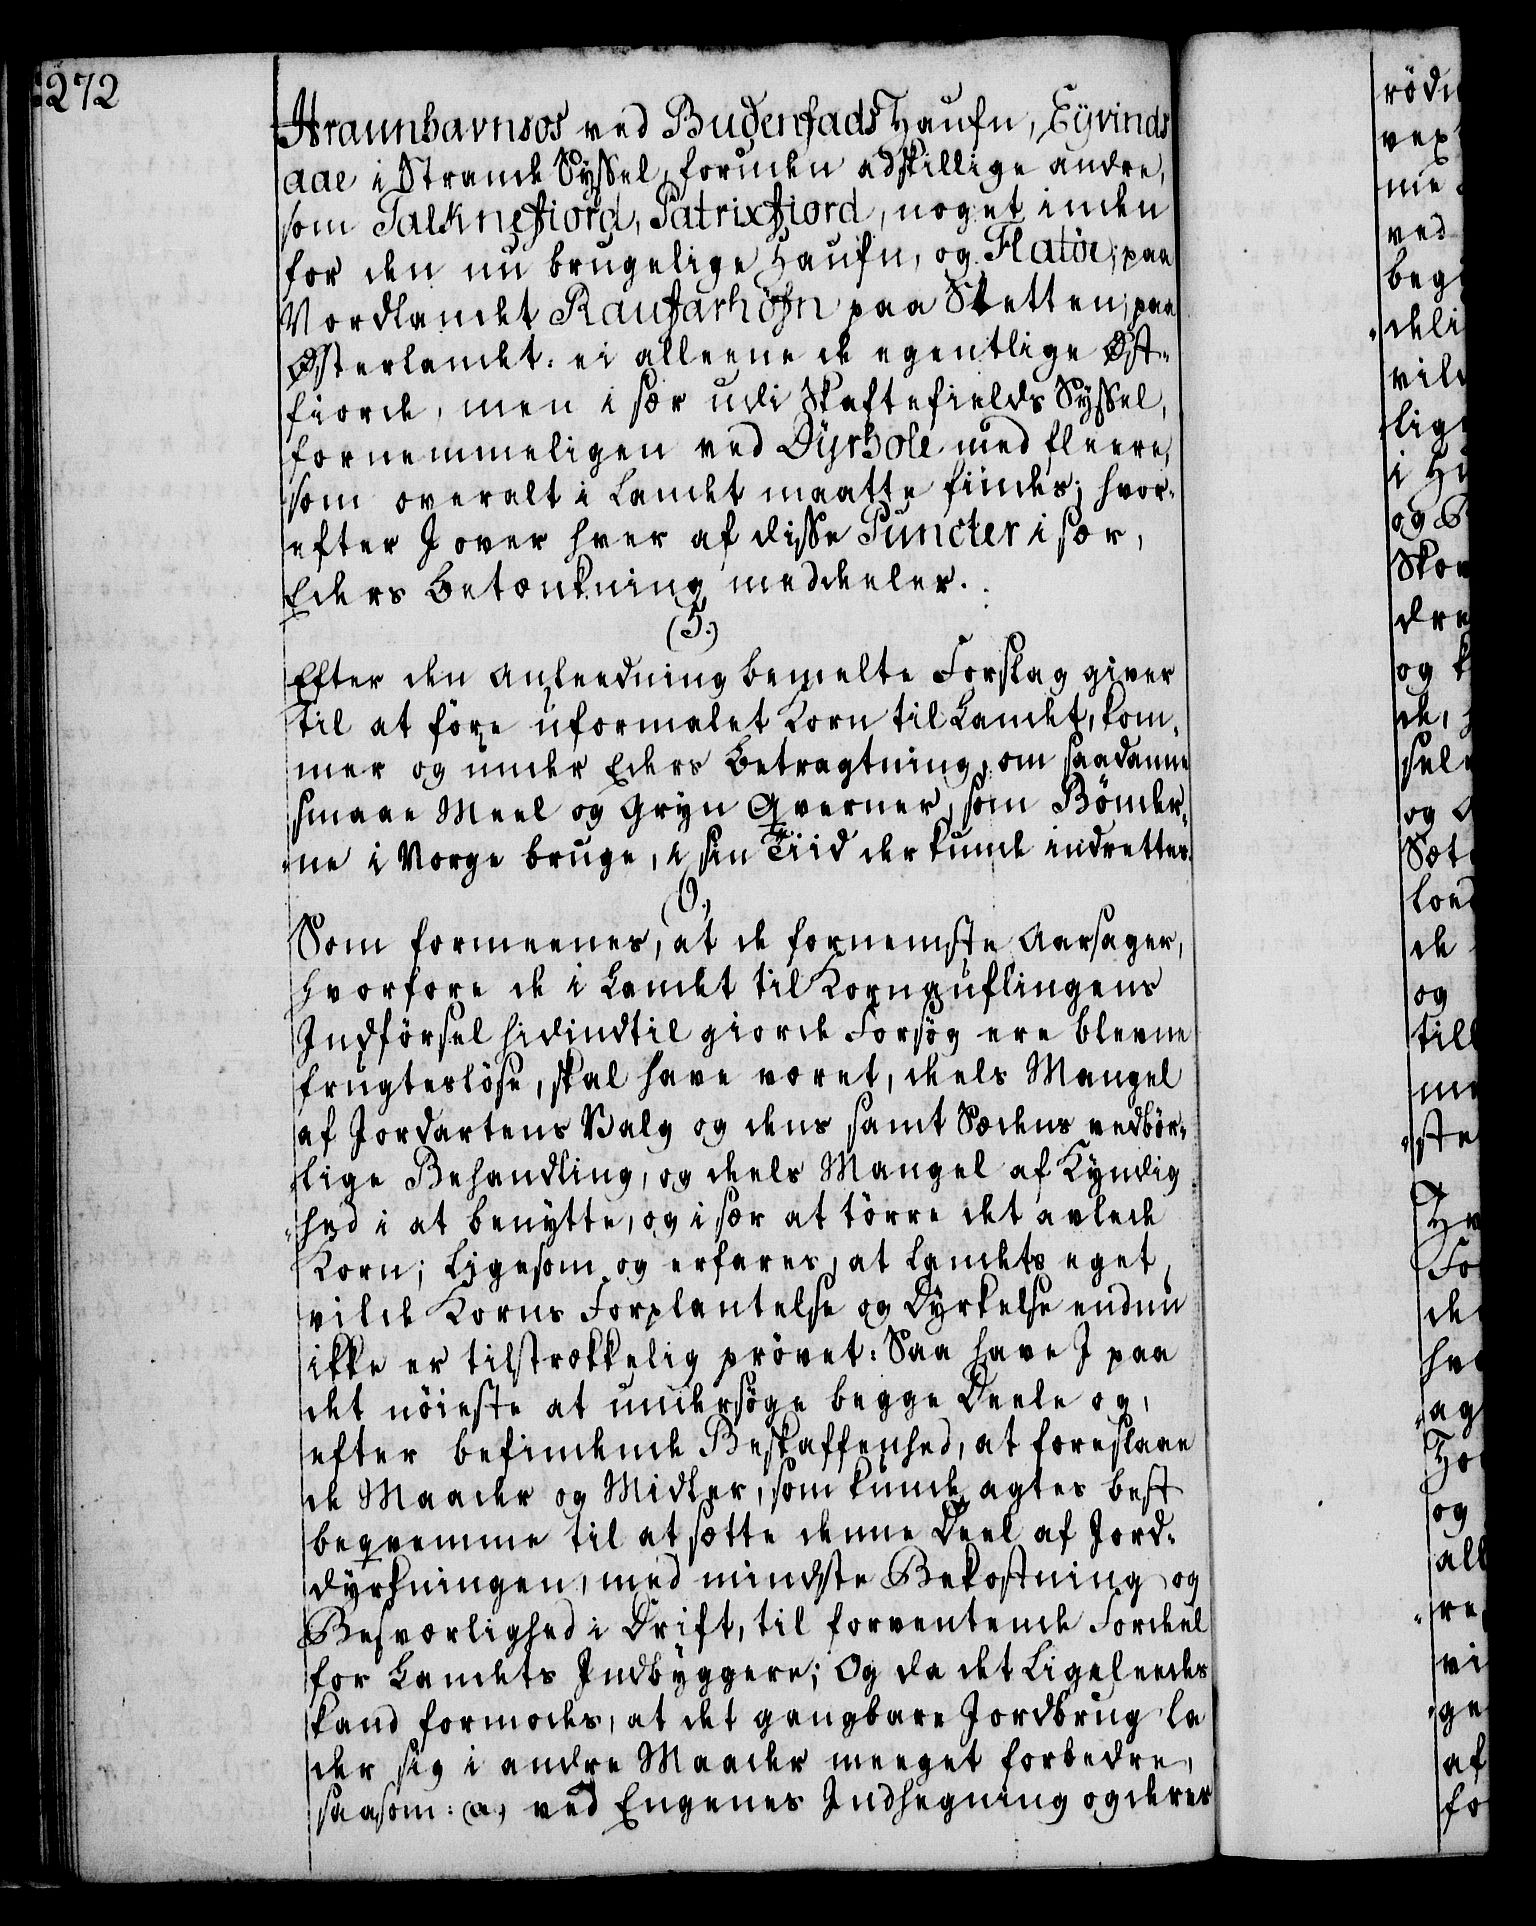 272
Hraunhavnsos ved Budenstads Haufn, Eyvinds
aae i Strande Syssel, foruden adskillige andre,
som Talknefiord, Patrixfiord, noget inden
for den nu brugelige Haufn, og Flatöe; paa
Nordlandet Raufarhöfn paa Sletten; paa
Østerlandet: ei alleene de egentlige Øst-
fiorde, men i sær udi Skaftefields Syssel,
fornemmeligen ved Dyrhole med fleere,
som overalt i Landet maatte findes; hvor-
efter J over hver af disse Puncter i sær,
Eders Betænkning meddeeler.
(5.)
Efter den Anleedning bemelte Forslag giver
til at före uformalet Korn til Landet, kom-
mer og under Eders Betragtning, om saadanne
smaae Meel og Gryn Qverner, som Bönder-
ne i Norge bruge, i sin Tiid der kunde indrettes.
6.
Som formeenes, at de fornemste Aarsager,
hvorfore de i Landet til Kornauflingens
Indförsel hidindtil giorde Forsög ere blevne
frugteslöse, skal have været, deels Mangel
af Jordartens Valg og dens samt Sædens vedbör-
lige Behandling, og deels Mangel af Kyndig
hed i at benytte, og i sær at törre det avlede
Korn; Ligesom og erfares, at Landets eget
vilde Korns Forplantelse og Dyrkelse endnu
ikke er tilstrækkelig prövet: Saa have J paa
det nöieste at undersöge begge Deele og,
efter befindende Beskaffenhed, at foreslaae
de Maader og Midler, som kunde agtes best
beqvemme til at sætte denne Deel af Jord-
dyrkningen, med mindste Bekostning og
Besværlighed i Drift, til forventende Fordeel
for Landets Indbyggere; Og da det Ligeleedes
kand formodes, at det gangbare Jordbrug la
der sig i andre Maader meeget forbedre,
saasom: (a.) ved Engenes Indhegning og deres